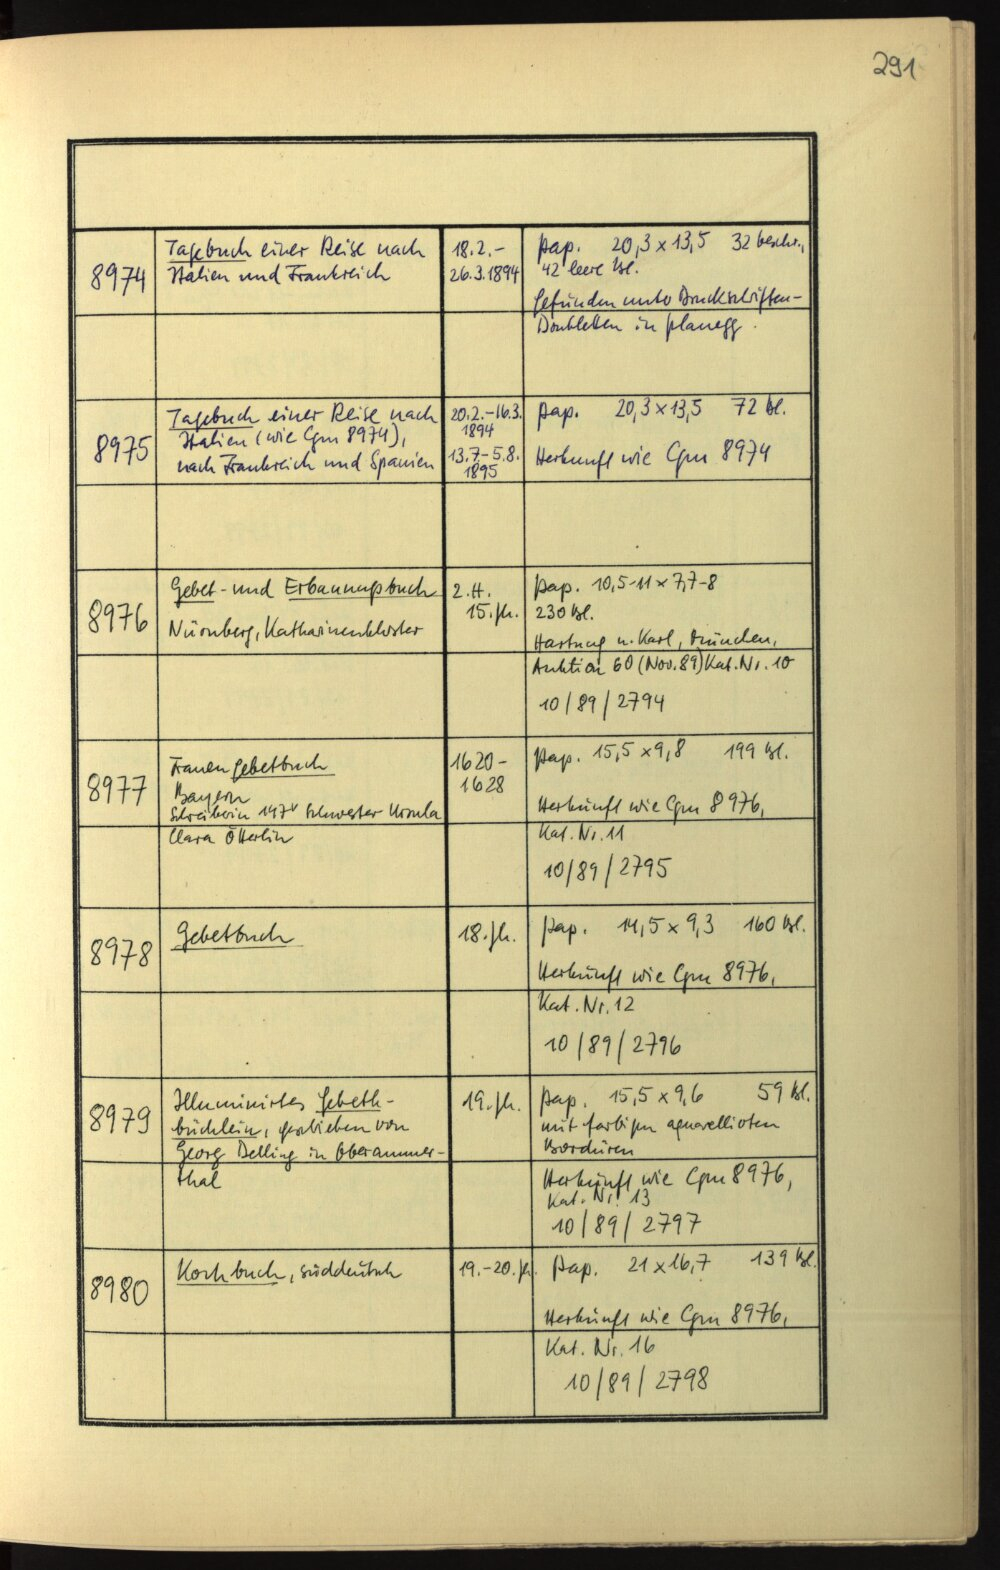 291
8974
Tagebuch einer Reise nach
Italien und Frankreich
18.2.-
26.3.1894
Pap. 20,3 x 13,5 32 beschr.,
42 leere Bl.
Gefunden unter Druckschriften-
Doubletten in Planegg.
8975
Tagebuch einer Reise nach
Italien (wie Cgm 8974),
nach Frankreich und Spanien
20.2.-16.3.
1894
13.7.-5.8.
1895
Pap. 20,3 x 13,5 72 Bl.
Herkunft wie Cgm 8974
8976
Gebet- und Erbauungsbuch
Nürnberg, Katharinenkloster
2.H.
15.Jh.
Pap. 10,5-11 x 7,7-8
230 Bl.
Hartung u. Karl, München,
Auktion 60 (Nov. 89) Kat. Nr. 10
10/89/2794
8977
Frauengebetbuch
Bayern
Schreiberin 147v Schwester Ursula
Clara Ötterlin
1620-
1628
Pap. 15,5 x 9,8 199 Bl.
Herkunft wie Cgm 8976,
Kat. Nr. 11
10/89/2795
8978
Gebetbuch
18.Jh.
Pap. 14,5 x 9,3 160 Bl.
Herkunft wie Cgm 8976,
Kat. Nr. 12
10/89/2796
8979
Illuminirtes Gebeth-
büchlein, geschrieben von
Georg Delling in Oberammer-
thal
19.Jh.
Pap. 15,5 x 9,6 59 Bl.
mit farbigen aquarellierten
Bordüren
Herkunft wie Cgm 8976,
Kat. Nr. 13
10/89/2797
8980
Kochbuch, süddeutsch
19.-20.Jh.
Pap. 21 x 16,7 139 Bl.
Herkunft wie Cgm 8976,
Kat. Nr. 16
10/89/2798